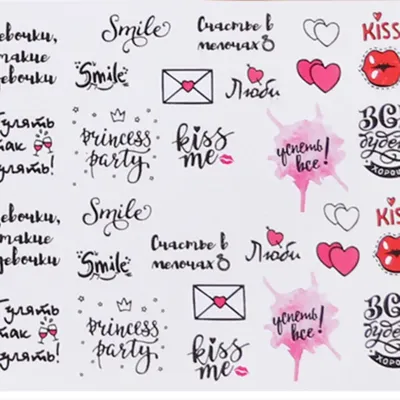 девочки,
такие
девочки
Smile
Smile
Счастье в
мелочах
Люби
KISS
Гулять
так
гулять!
princess
party
kiss
me
успеть
все!
будет
хорошо
девочки,
такие
девочки
Smile
Smile
Счастье в
мелочах
Люби
KISS
Гулять
так
гулять!
princess
party
kiss
me
успеть
все!
будет
хорошо